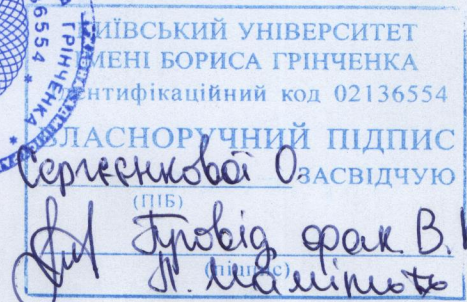 КИЇВСЬКИЙ УНІВЕРСИТЕТ
ІМЕНІ БОРИСА ГРІНЧЕНКА
Ідентифікаційний код 02136554
ВЛАСНОРУЧНИЙ ПІДПИС
Сергєєнкової О. ЗАСВІДЧУЮ
(ПІБ)
Провід фак. В.
(підпис)
ГРІНЧЕНКА * 6554